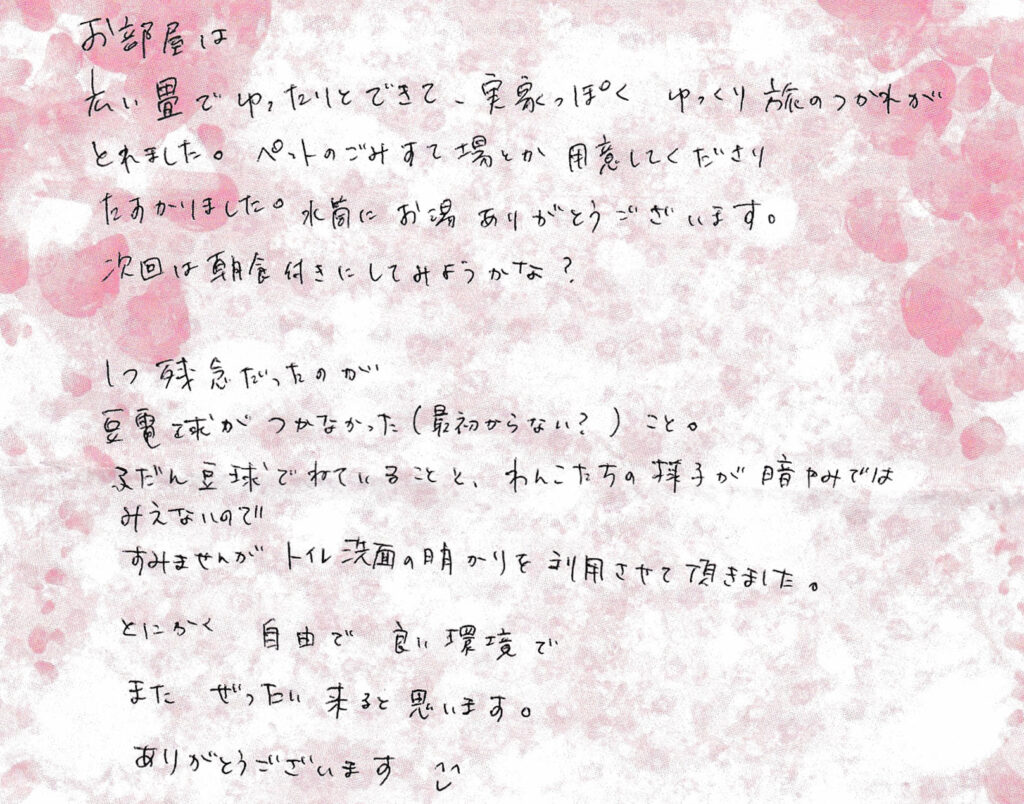 お部屋は
広い畳でゆったりとできて、実家っぽく ゆっくり旅のつかれが
とれました。ペットのごみすて場とか 用意してくださり
たすかりました。水筒にお湯ありがとうございます。
次回は朝食付きにしてみようかな?
1つ残念だったのが
豆電球がつかなかった(最初からない?)こと。
ふだん豆球でねていることと、わんこたちの様子が暗やみでは
みえないので
すみませんがトイレ洗面の明かりを利用させて頂きました。
とにかく 自由で 良い環境で
また ぜったい来ると思います。
ありがとうございます